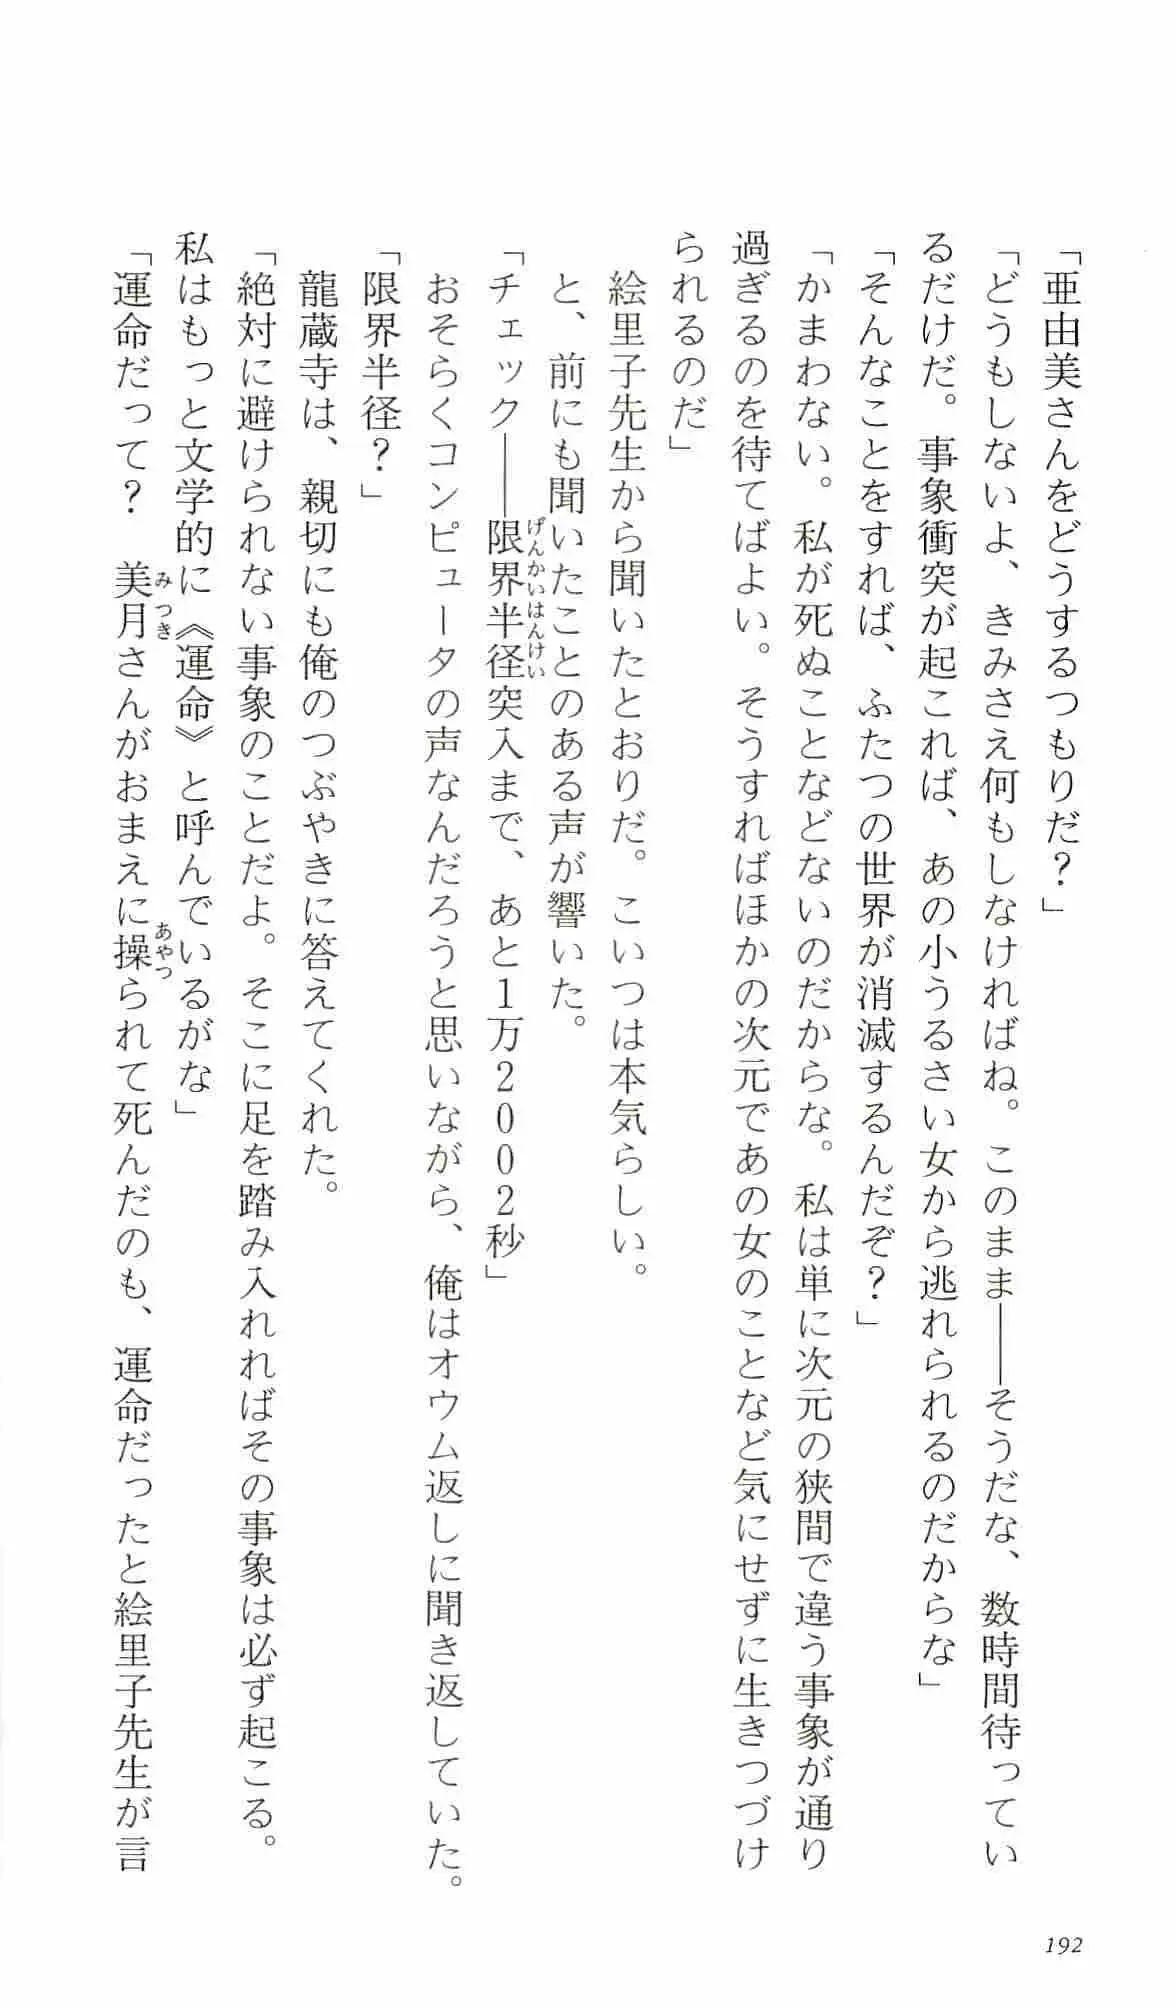 「亜由美さんをどうするつもりだ？」
「どうもしないよ、きみさえ何もしなければね。このまま――そうだな、数時間待ってい
るだけだ。事象衝突が起これば、あの小うるさい女から逃れられるのだからな」
「そんなことをすれば、ふたつの世界が消滅するんだぞ？」
「かまわない。私が死ぬことなどないのだからな。私は単に次元の狭間で違う事象が通り
過ぎるのを待てばよい。そうすればほかの次元であの女のことなど気にせずに生きつづけ
られるのだ」
絵里子先生から聞いたとおりだ。こいつは本気らしい。
と、前にも聞いたことのある声が響いた。
「チェック――限界半径突入まで、あと１万２００２秒」
げんかいはんけい
おそらくコンピュータの声なんだろうと思いながら、俺はオウム返しに聞き返していた。
「限界半径？」
龍蔵寺は、親切にも俺のつぶやきに答えてくれた。
「絶対に避けられない事象のことだよ。そこに足を踏み入れればその事象は必ず起こる。
私はもっと文学的に《運命》と呼んでいるがな」
「運命だって？　美月さんがおまえに操られて死んだのも、運命だったと絵里子先生が言
みつき
あやつ
192